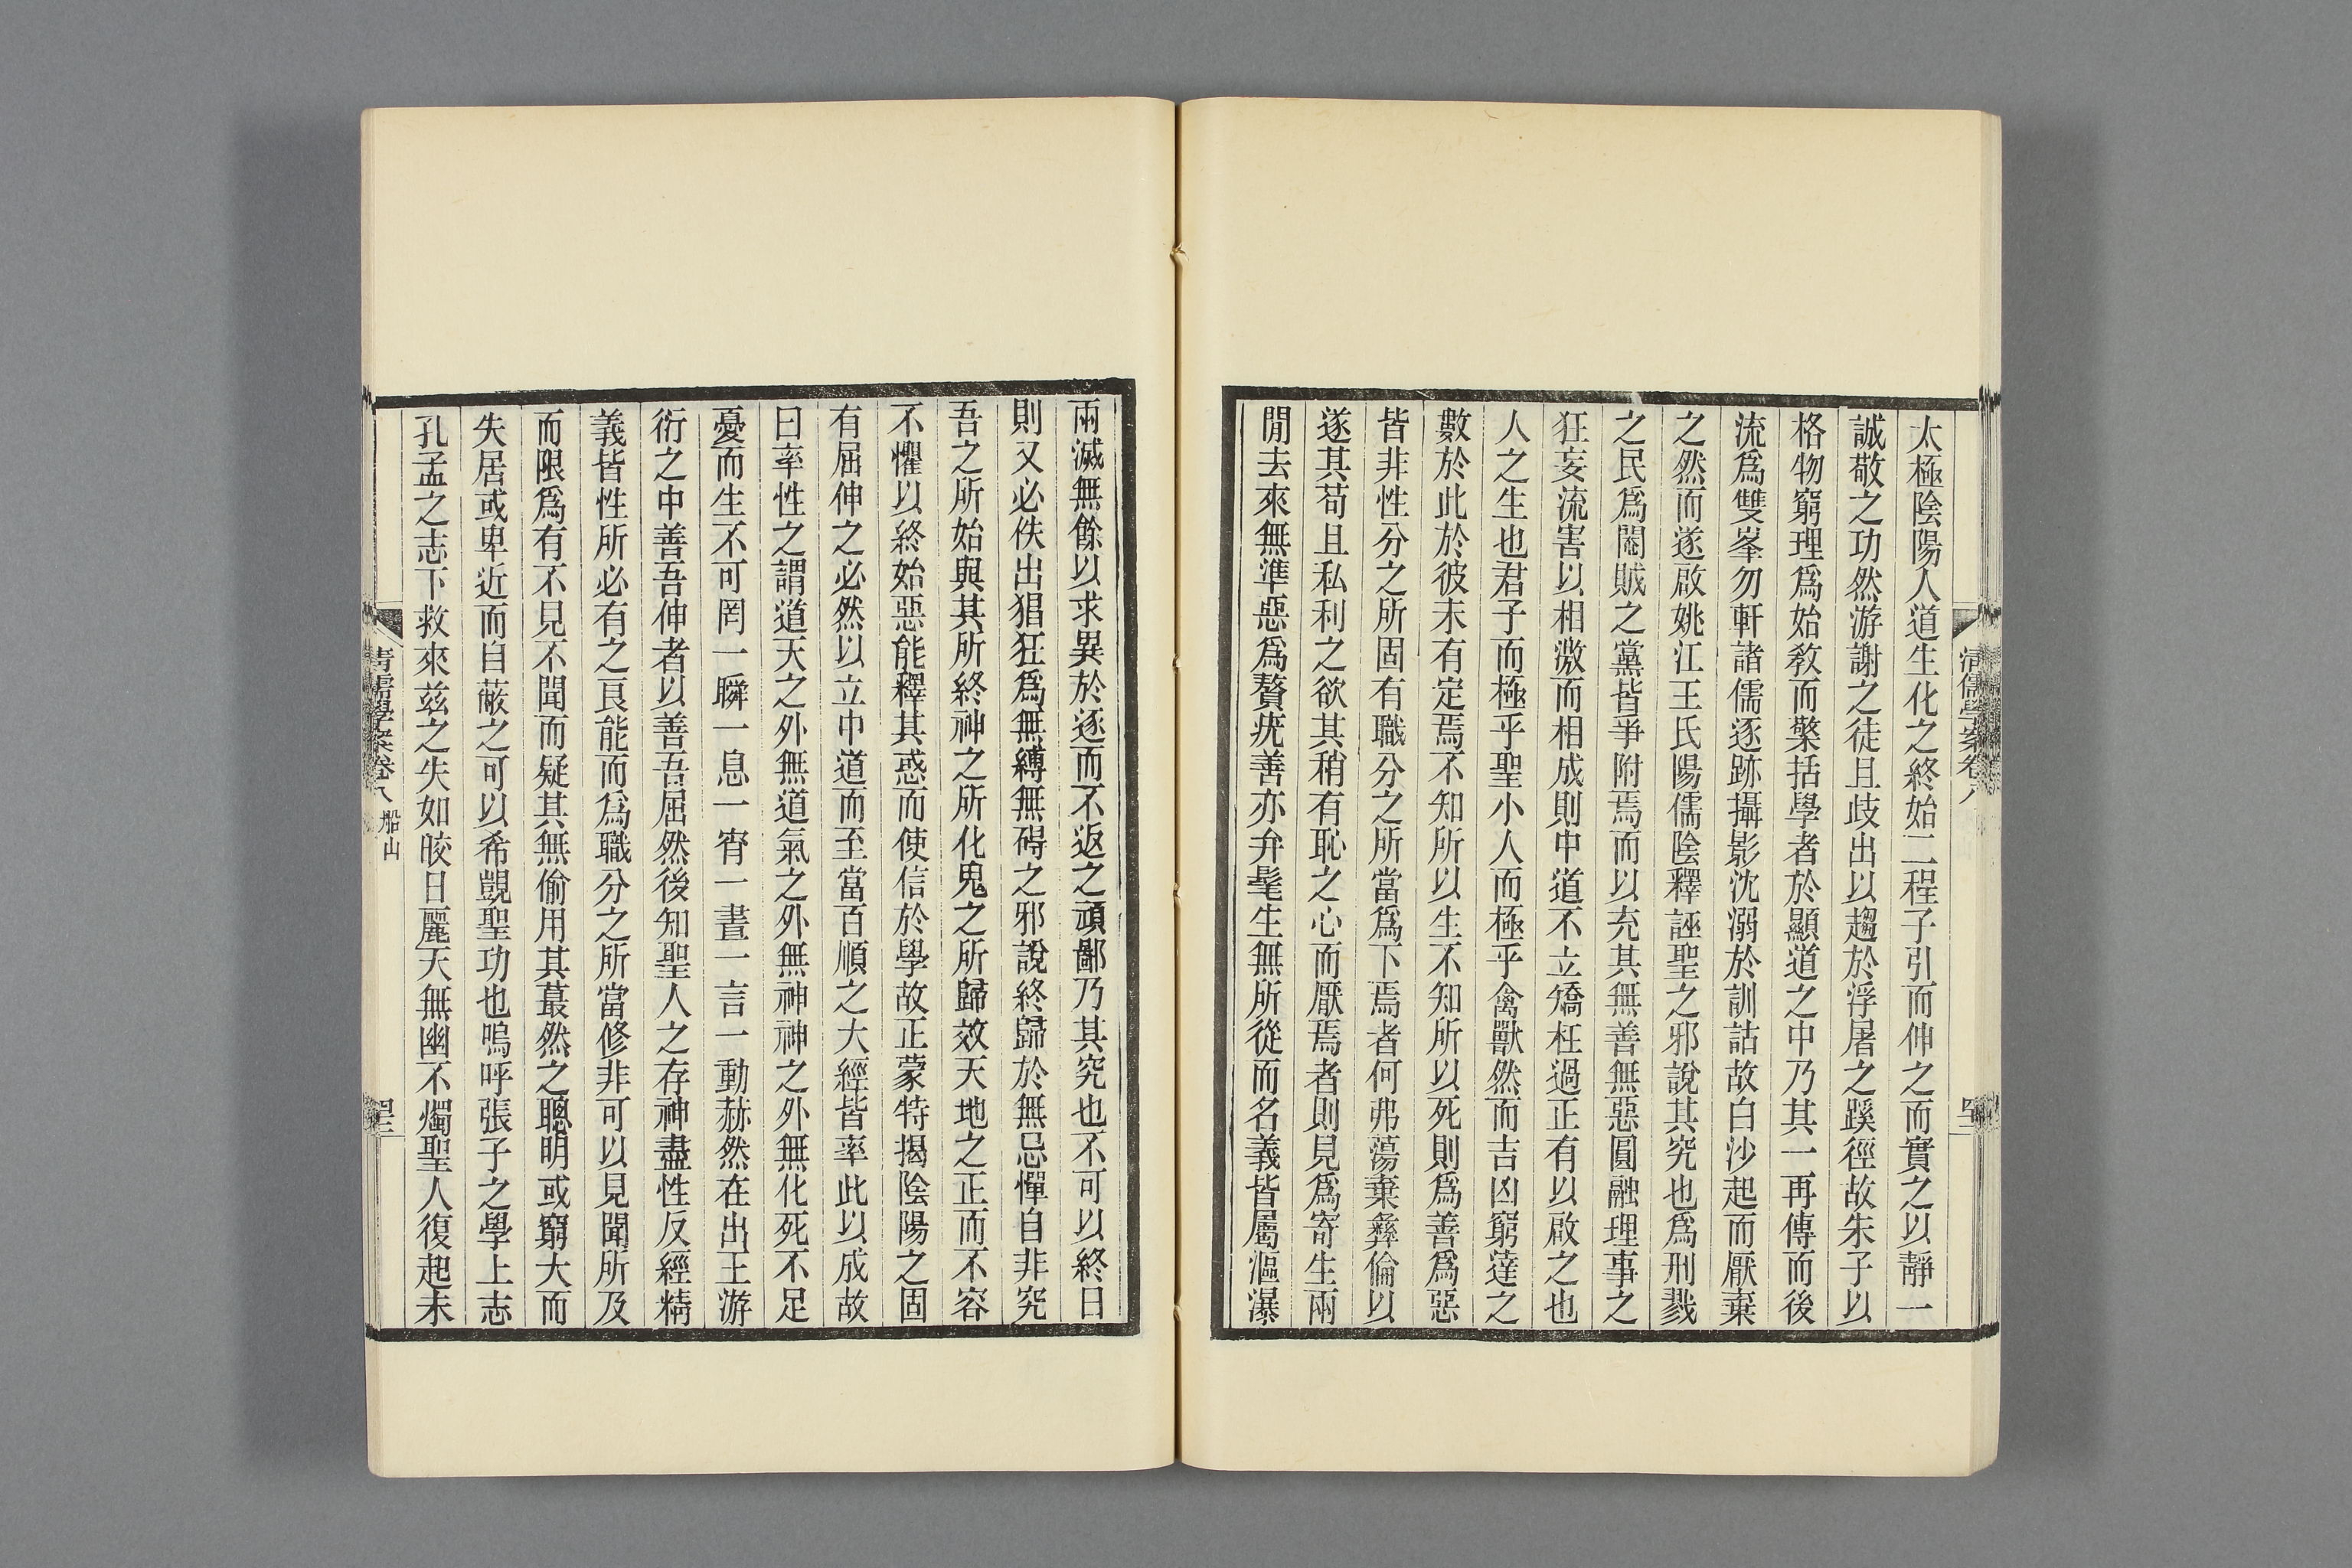 太極陰陽人道生化之終始二程子引而伸之而實之以靜一
誠敬之功然游謝之徒且歧出以趨於浮屠之蹊徑故朱子以
格物窮理爲始敎而檠括學者於顯道之中乃其一再傳而後
流爲雙峯勿軒諸儒逐跡攝影沈溺於訓詁故白沙起而厭棄
之然而遂啟姚江王氏陽儒陰釋誣聖之邪說其究也爲刑戮
之民爲閹賊之黨皆爭附焉而以充其無善無惡圓融理事之
狂妄流害以相激而相成則中道不立矯枉過正有以啟之也
人之生也君子而極乎聖小人而極乎禽獸然而吉凶窮達之
數於此於彼未有定焉不知所以生不知所以死則爲善爲惡
皆非性分之所固有職分之所當爲下焉者何弗蕩棄彝倫以
遂其苟且私利之欲其稍有恥之心而厭焉者則見爲寄生兩
閒去來無準惡爲贅疣善亦弁髦生無所從而名義皆屬漚瀑
兩滅無餘以求異於逐而不返之頑鄙乃其究也不可以終日
則又必佚出猖狂爲無縛無碍之邪說終歸於無忌憚自非究
吾之所始與其所終神之所化鬼之所歸效天地之正而不容
不懼以終始惡能釋其惑而使信於學故正蒙特揭陰陽之固
有屈伸之必然以立中道而至當百順之大經皆率此以成故
曰率性之謂道天之外無道氣之外無神神之外無化死不足
憂而生不可罔一瞬一息一宵一晝一言一動赫然在出王游
衍之中善吾伸者以善吾屈然後知聖人之存神盡性反經精
義皆性所必有之良能而爲職分之所當修非可以見聞所及
而限爲有不見不聞而疑其無偷用其蕞然之聰明或窮大而
失居或卑近而自蔽之可以希覬聖功也嗚呼張子之學上志
孔孟之志下救來茲之失如皎日麗天無幽不燭聖人復起未
清儒學案卷八
清儒學案卷八 船山